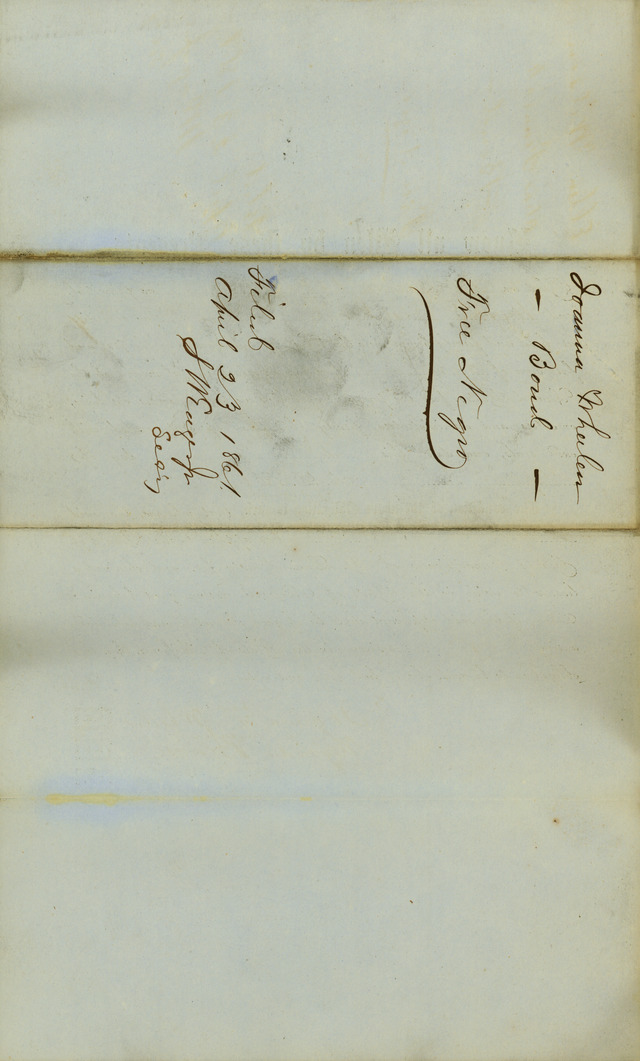 Joanna Whelen
— Bond —
Free Negro
Filed
April 23 1861.
S W Eager Jr
Sec'y